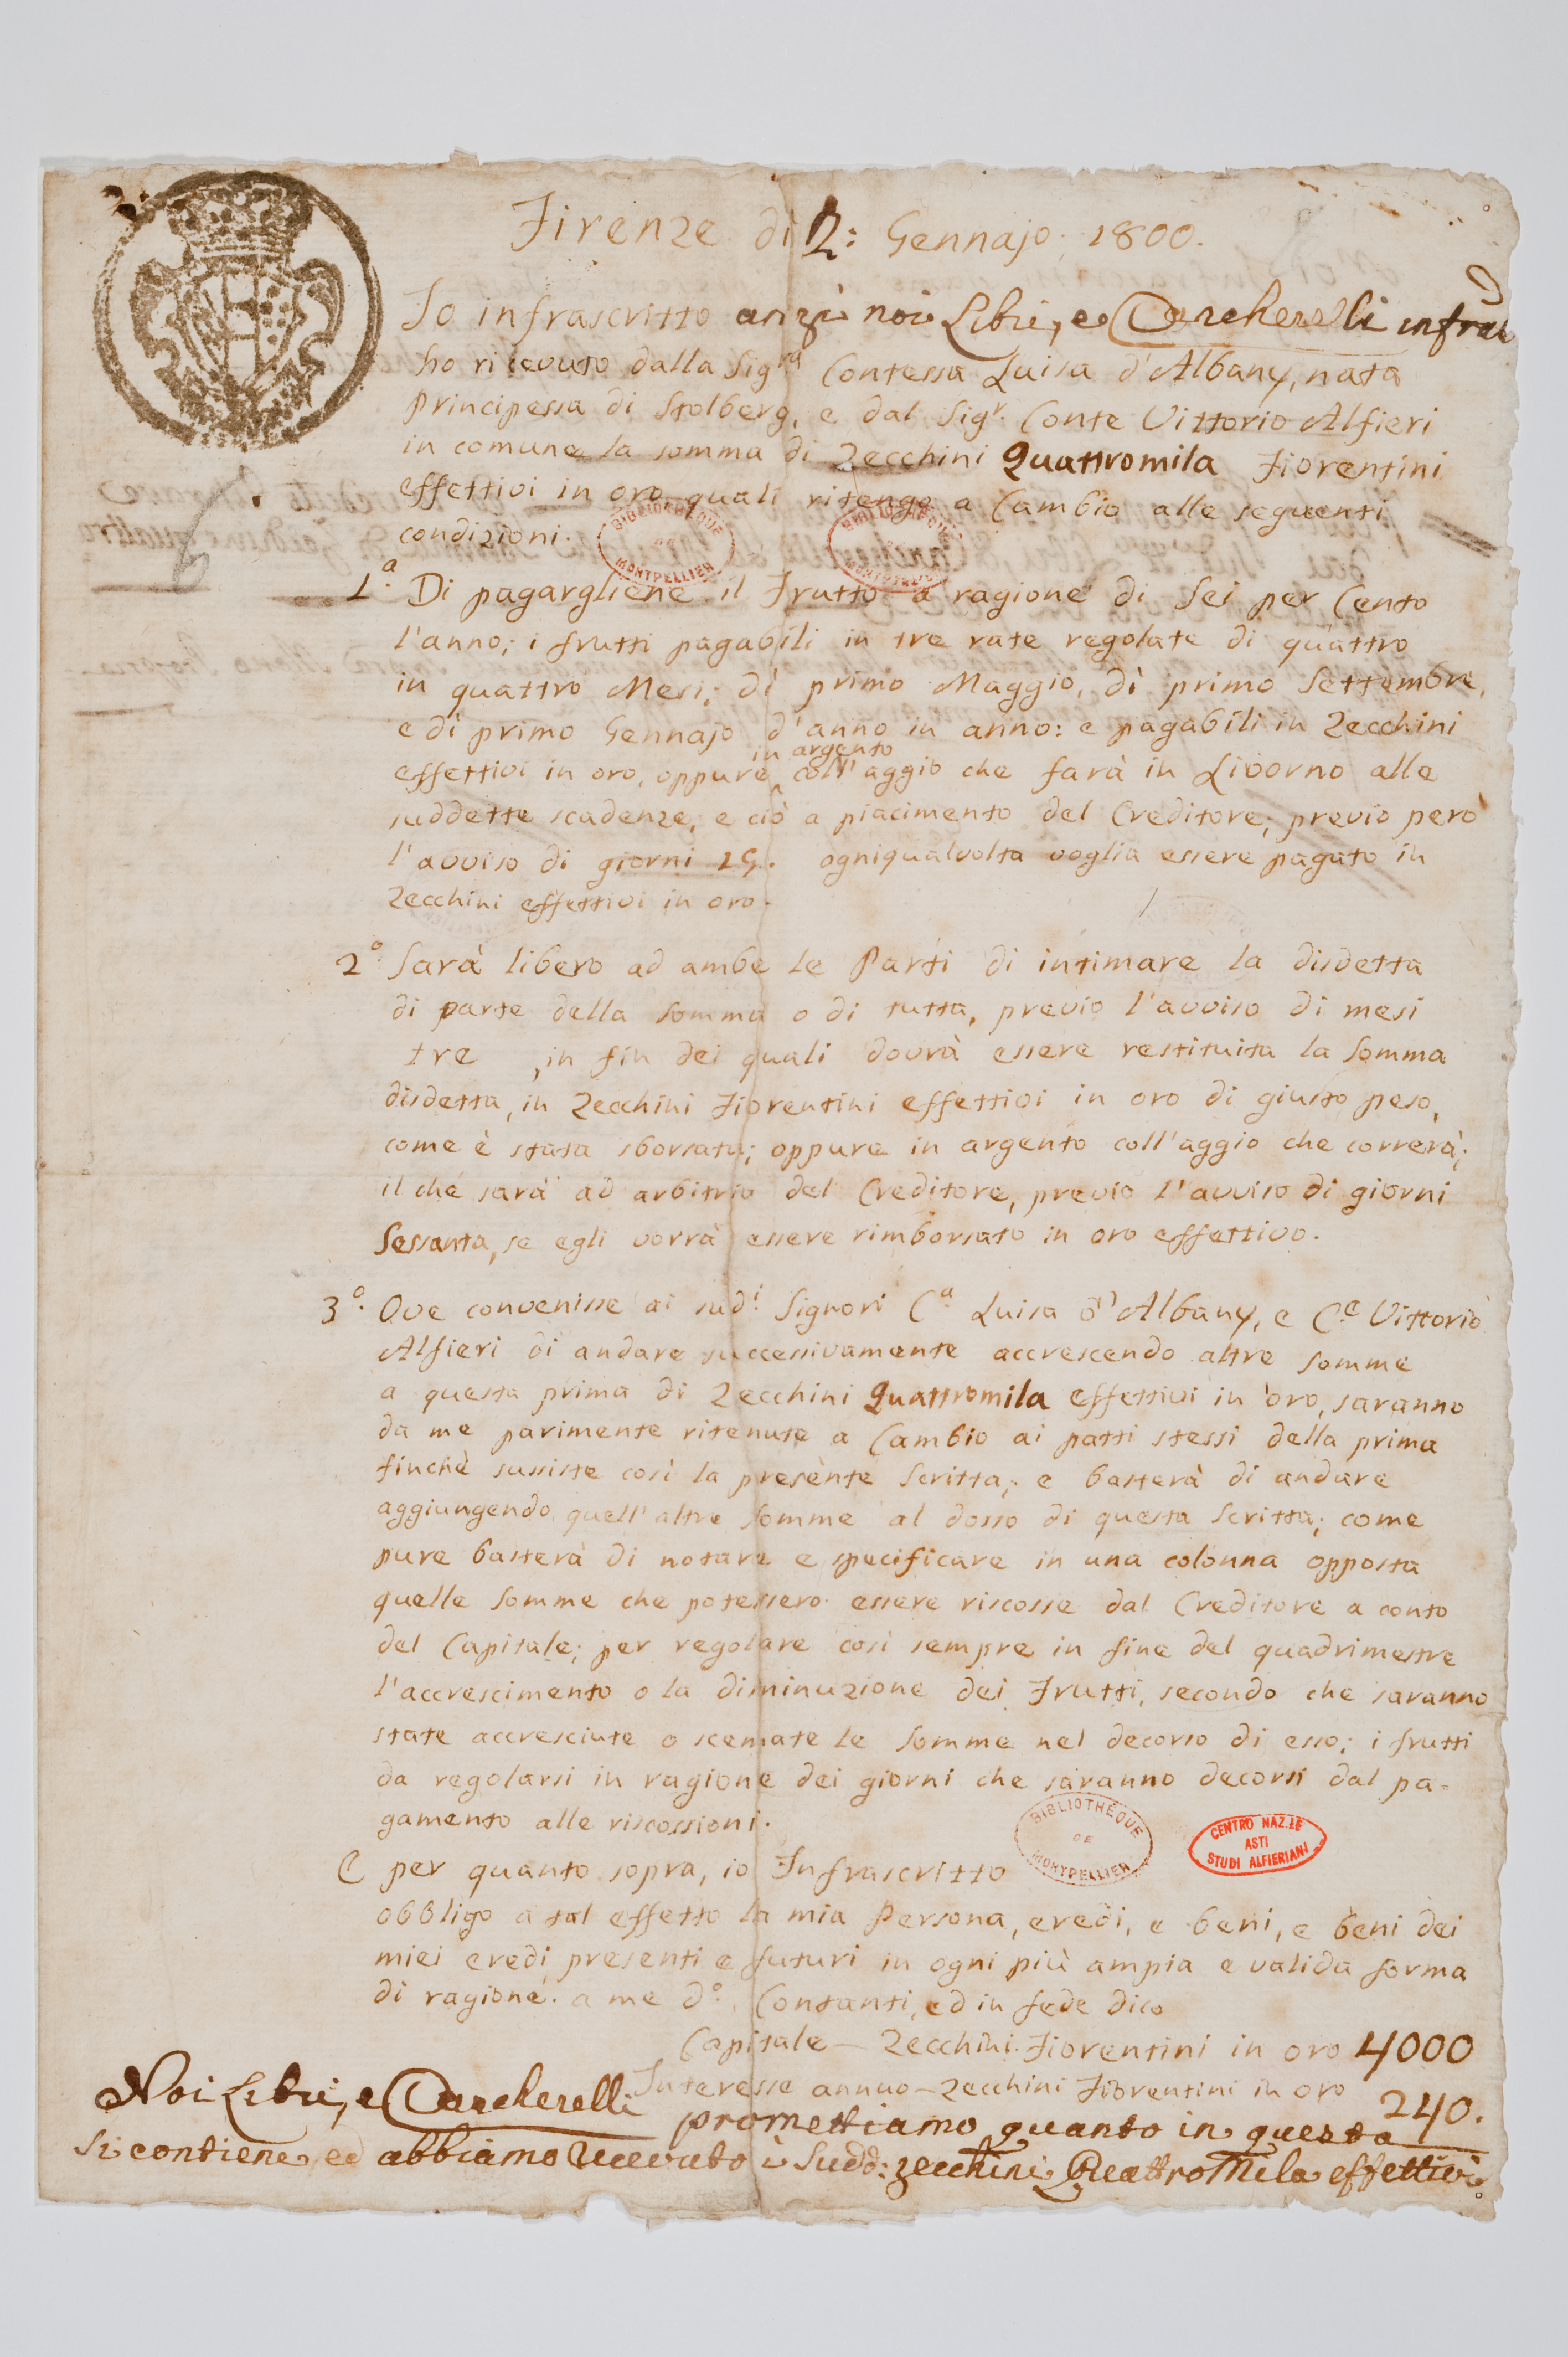 Firenze. dì 2: Gennajo. 1800.
Io infrascritto anzi noi Libri, e Carcherelli infrati
ho ricevuto dalla Sigra Contessa Luisa d'Albany, nata
Principessa di Stolberg, e dal Sigr. Conte Vittorio Alfieri
in comune la somma di Zecchini Quattromila Fiorentini
effettivi in oro quali ritengo a Cambio alle seguenti
condizioni.
1.a Di pagargliene il Frutto a ragione di Sei per Cento
l'anno; i frutti pagabili in tre rate regolate di quattro
in quattro Mesi; dì primo Maggio, dì primo Settembre,
e dì primo Gennajo d'anno in anno: e pagabili in Zecchini
in argento
effettivi in oro, oppure coll'aggio che farà in Livorno alle
suddette scadenze; e ciò a piacimento del Creditore; previo però
l'avviso di giorni 15. ogniqualvolta voglia essere pagato in
Zecchini effettivi in oro.
2.o Sarà libero ad ambe le Parti di intimare la disdetta
di parte della somma o di tutta, previo l'avviso di mesi
tre, in fin dei quali dovrà essere restituita la Somma
disdetta, in Zecchini Fiorentini effettivi in oro di giusto peso,
come è stata sborsata; oppure in argento coll'aggio che correrà;
il che sarà ad arbitrio del Creditore, previo l'avviso di giorni
Sessanta, se egli vorrà essere rimborsato in oro effettivo.
3.o Ove convenisse ai sudi. Signori Ca. Luisa d'Albany, e Ce. Vittorio
Alfieri di andare successivamente accrescendo altre somme
a questa prima di Zecchini Quattromila effettivi in oro, saranno
da me parimente ritenute a Cambio ai patti stessi della prima
finchè sussiste così la presente Scritta; e basterà di andare
aggiungendo quell'altre Somme al dosso di questa Scritta; come
pure basterà di notare e specificare in una colonna opposta
quelle Somme che potessero essere riscosse dal Creditore a conto
del Capitale; per regolare così sempre in fine del quadrimestre
l'accrescimento o la diminuzione dei Frutti, secondo che saranno
state accresciute o scemate le Somme nel decorso di esso; i frutti
da regolarsi in ragione dei giorni che saranno decorsi dal pa-
gamento alle riscossioni.
E per quanto sopra, io Infrascritto
obbligo a tal effetto la mia Persona, eredi, e beni, e beni dei
miei eredi presenti e futuri in ogni più ampia e valida forma
di ragione. a me do. Contanti, ed in fede dico
Capitale — Zecchini Fiorentini in oro 4000
Interesse annuo — Zecchini Fiorentini in oro 240.
Noi Libri, e Carcherelli promettiamo quanto in questa
si contiene, ed abbiamo ricevuto i Sudd: zecchini Quattro Mila effettivi
BIBLIOTHEQUE
DE
MONTPELLIER
BIBLIOTHEQUE
MONTPELLIER
BIBLIOTHÈQUE
DE
MONTPELLIER
CENTRO NAZ.LE
ASTI
STUDI ALFIERIANI